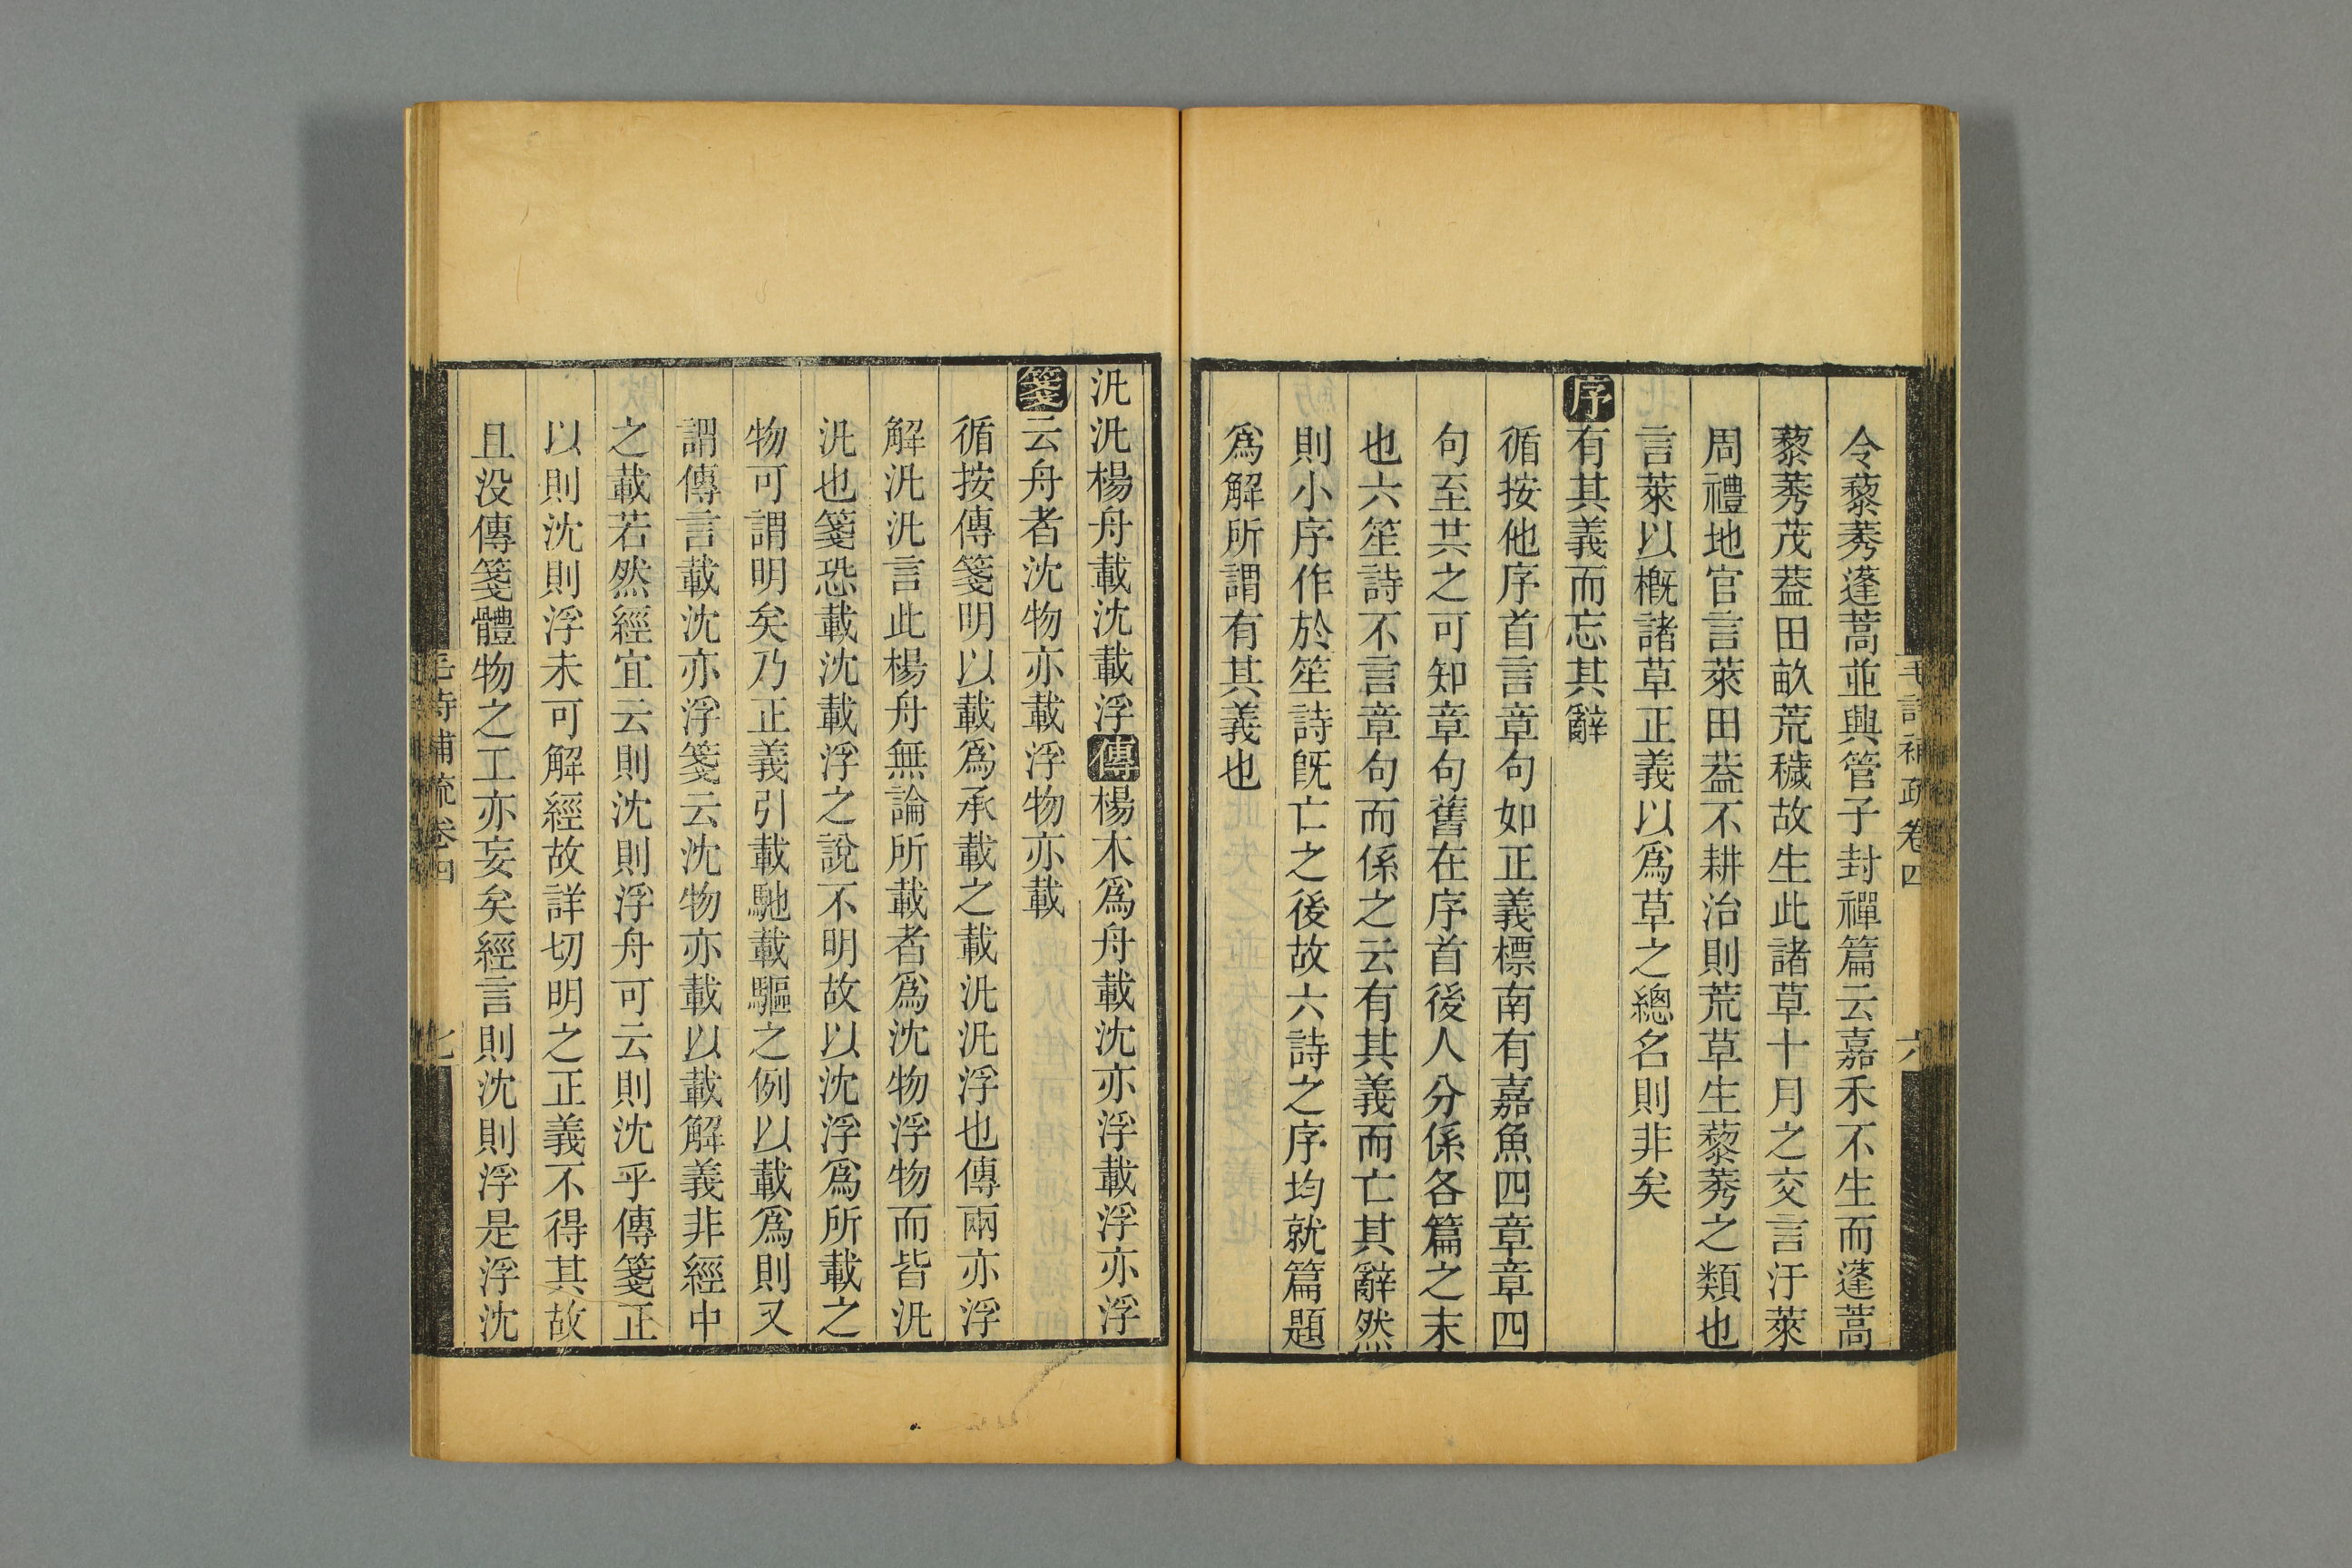 毛詩補疏卷四
六
令藜莠蓬蒿並興管子封禪篇云嘉禾不生而蓬蒿
藜莠茂葢田畝荒穢故生此諸草十月之交言汙萊
周禮地官言萊田葢不耕治則荒草生藜莠之類也
言萊以槪諸草正義以爲草之總名則非矣
序有其義而忘其辭
循按他序首言章句如正義標南有嘉魚四章章四
句至共之可知章句舊在序首後人分係各篇之末
也六笙詩不言章句而係之云有其義而亡其辭然
則小序作於笙詩旣亡之後故六詩之序均就篇題
爲解所謂有其義也
汎汎楊舟載沈載浮傳楊木爲舟載沈亦浮載浮亦浮
箋云舟者沈物亦載浮物亦載
循按傳箋明以載爲承載之載汎汎浮也傳兩亦浮
解汎汎言此楊舟無論所載者爲沈物浮物而皆汎
汎也箋恐載沈載浮之說不明故以沈浮爲所載之
物可謂明矣乃正義引載馳載驅之例以載爲則又
謂傳言載沈亦浮箋云沈物亦載以載解義非經中
之載若然經宜云則沈則浮舟可云則沈乎傳箋正
以則沈則浮未可解經故詳切明之正義不得其故
且没傳箋體物之工亦妄矣經言則沈則浮是浮沈
毛詩補疏卷四
七